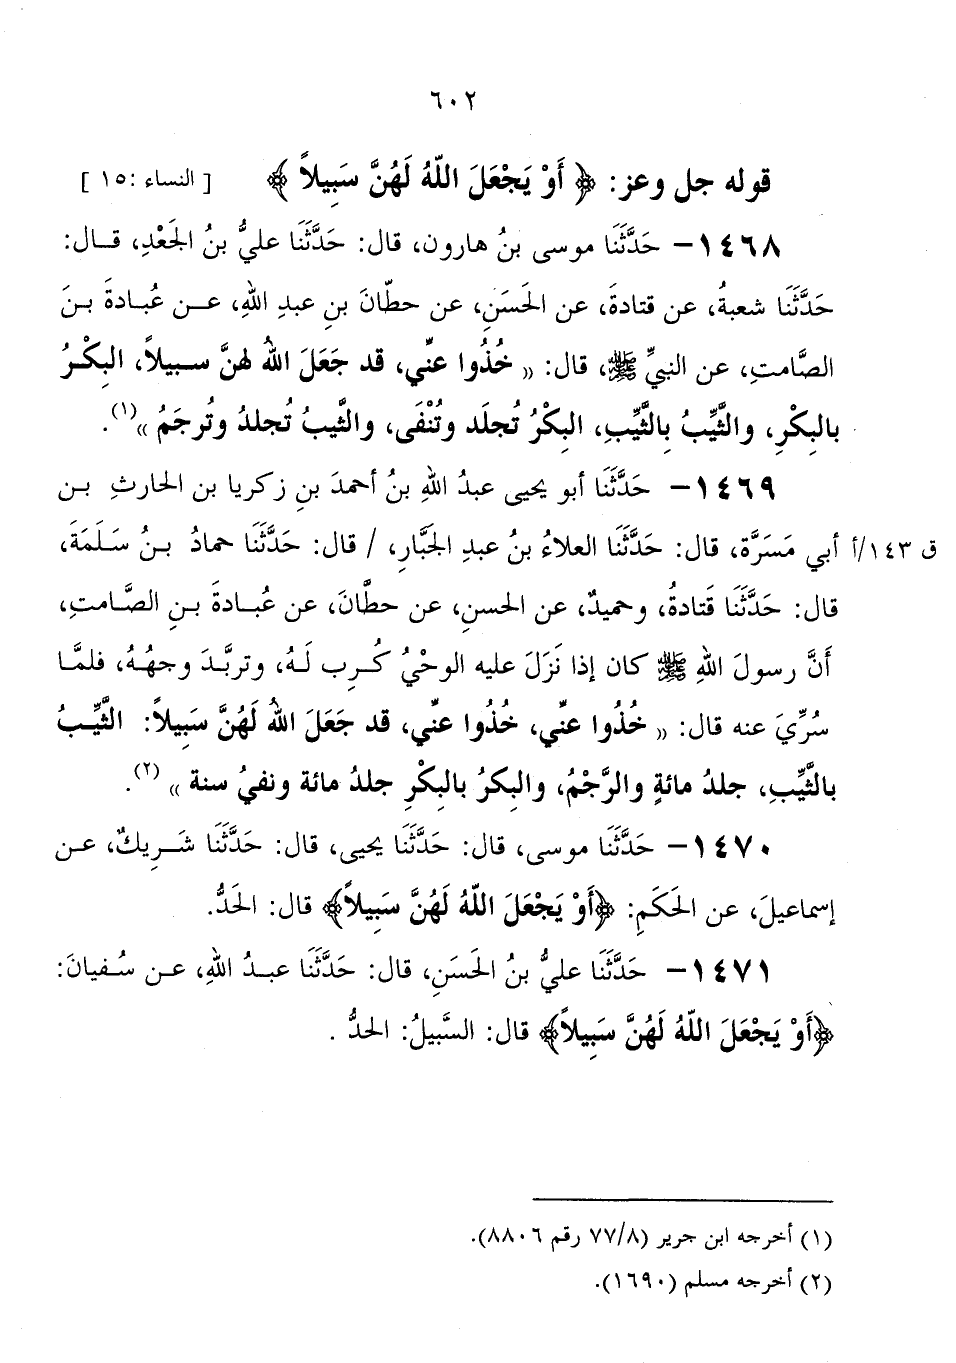 ٦٠٢
قوله جل وعز: ﴿ أَوْ يَجْعَلَ اللَّهُ لَهُنَّ سَبِيلاً ﴾ [ النساء :١٥ ]
١٤٦٨– حَدَّثَنَا موسى بنُ هارون، قال: حَدَّثَنَا عليُّ بنُ الجَعْدِ، قـال:
حَدَّثَنَا شعبةُ، عن قتادةَ، عن الحَسَنِ، عن حطَّانَ بنِ عبدِ اللهِ، عـن عُبـادةَ بـنَ
الصَّامتِ، عن النبيِّ ﷺ، قال: « خُذُوا عنِّي، قد جَعَلَ اللهُ لهنَّ سـبيلاً، البِكْـرُ
بالبِكْرِ، والثَّيِّبُ بِالثَّيِّبِ، البكْرُ تُجلَد وتُنْفَى، والثَّيبُ تُجلدُ وتُرجَمُ »(١).
١٤٦٩– حَدَّثَنَا أبو يحيى عبدُ اللهِ بنُ أحمدَ بنِ زكريا بن الحارثِ بـن
ق ١٤٣/أ أبي مَسَرَّة، قال: حَدَّثَنَا العلاءُ بنُ عبدِ الجَبَّارِ، / قال: حَدَّثَنَا حمادُ بـنُ سَـلَمَةَ،
قال: حَدَّثَنَا قَتادةُ، وحميدٌ، عن الحسنِ، عن حطَّانَ، عن عُبـادةَ بـنِ الصَّـامتِ،
أَنَّ رسولَ اللهِ ﷺ كان إذا نَزَلَ عليه الوحْيُ كُـرِب لَـهُ، وتربَّـدَ وجهُـهُ، فلمَّـا
سُرِّيَ عنه قال: « خُذُوا عنِّي، خُذوا عنِّي، قد جَعَلَ اللهُ لَهُنَّ سَبِيلاً: الثَّيِّـبُ
بالثَّيِّبِ، جلدُ مائةٍ والرَّجْمُ، والبِكرُ بالبِكْرِ جلدُ مائة ونفيُ سنة »(٢).
١٤٧٠– حَدَّثَنَا موسى، قال: حَدَّثَنَا يحيى، قال: حَدَّثَنَا شَـرِيكٌ، عـن
إسماعيلَ، عن الحَكَمِ: ﴿أَوْ يَجْعَلَ اللَّهُ لَهُنَّ سَبِيلاً﴾ قال: الحَدُّ.
١٤٧١– حَدَّثَنَا عليُّ بنُ الحَسَنِ، قال: حَدَّثَنَا عبـدُ اللهِ، عـن سُـفيانَ:
﴿أَوْ يَجْعَلَ اللَّهُ لَهُنَّ سَبِيلاً﴾ قال: السَّبيلُ: الحدُّ .
(١) أخرجه ابن جرير (٧٧/٨ رقم ٨٨٠٦).
(٢) أخرجه مسلم (١٦٩٠).